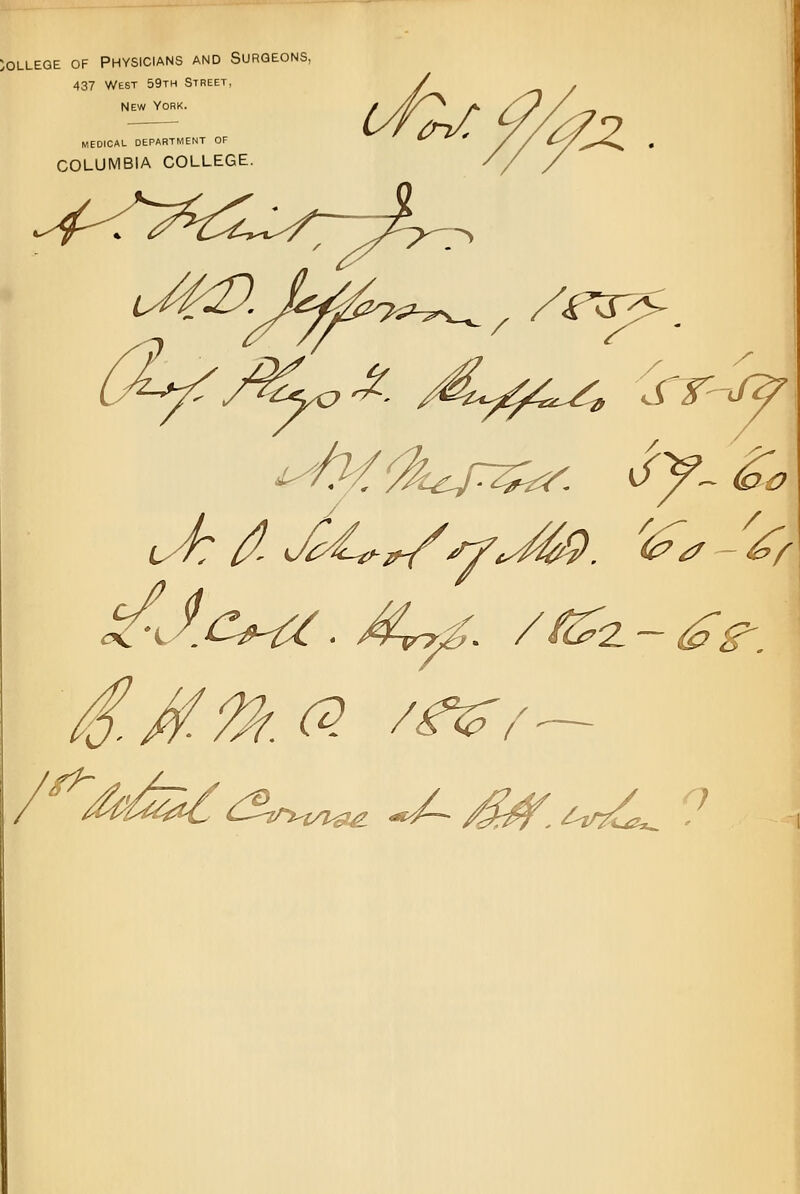 COLLEGE OF PHYSICIANS AND SURGEONS,
437 WEST 59TH STREET,
NEW YORK.
MEDICAL DEPARTMENT OF
COLUMBIA COLLEGE.
Nov. 9/92.
A. Flint, Jr.
M.D. Jefferson, 1857.
Prof. Physiol. Buffalo '58-'59
N.Y. Med. Coll. '59-'60
N. O. School of Med. '60-'61
L.I. Coll. Hosp. 1862-68.
B. H. M. C. 1861—
1st Actual Course at B.H. when?